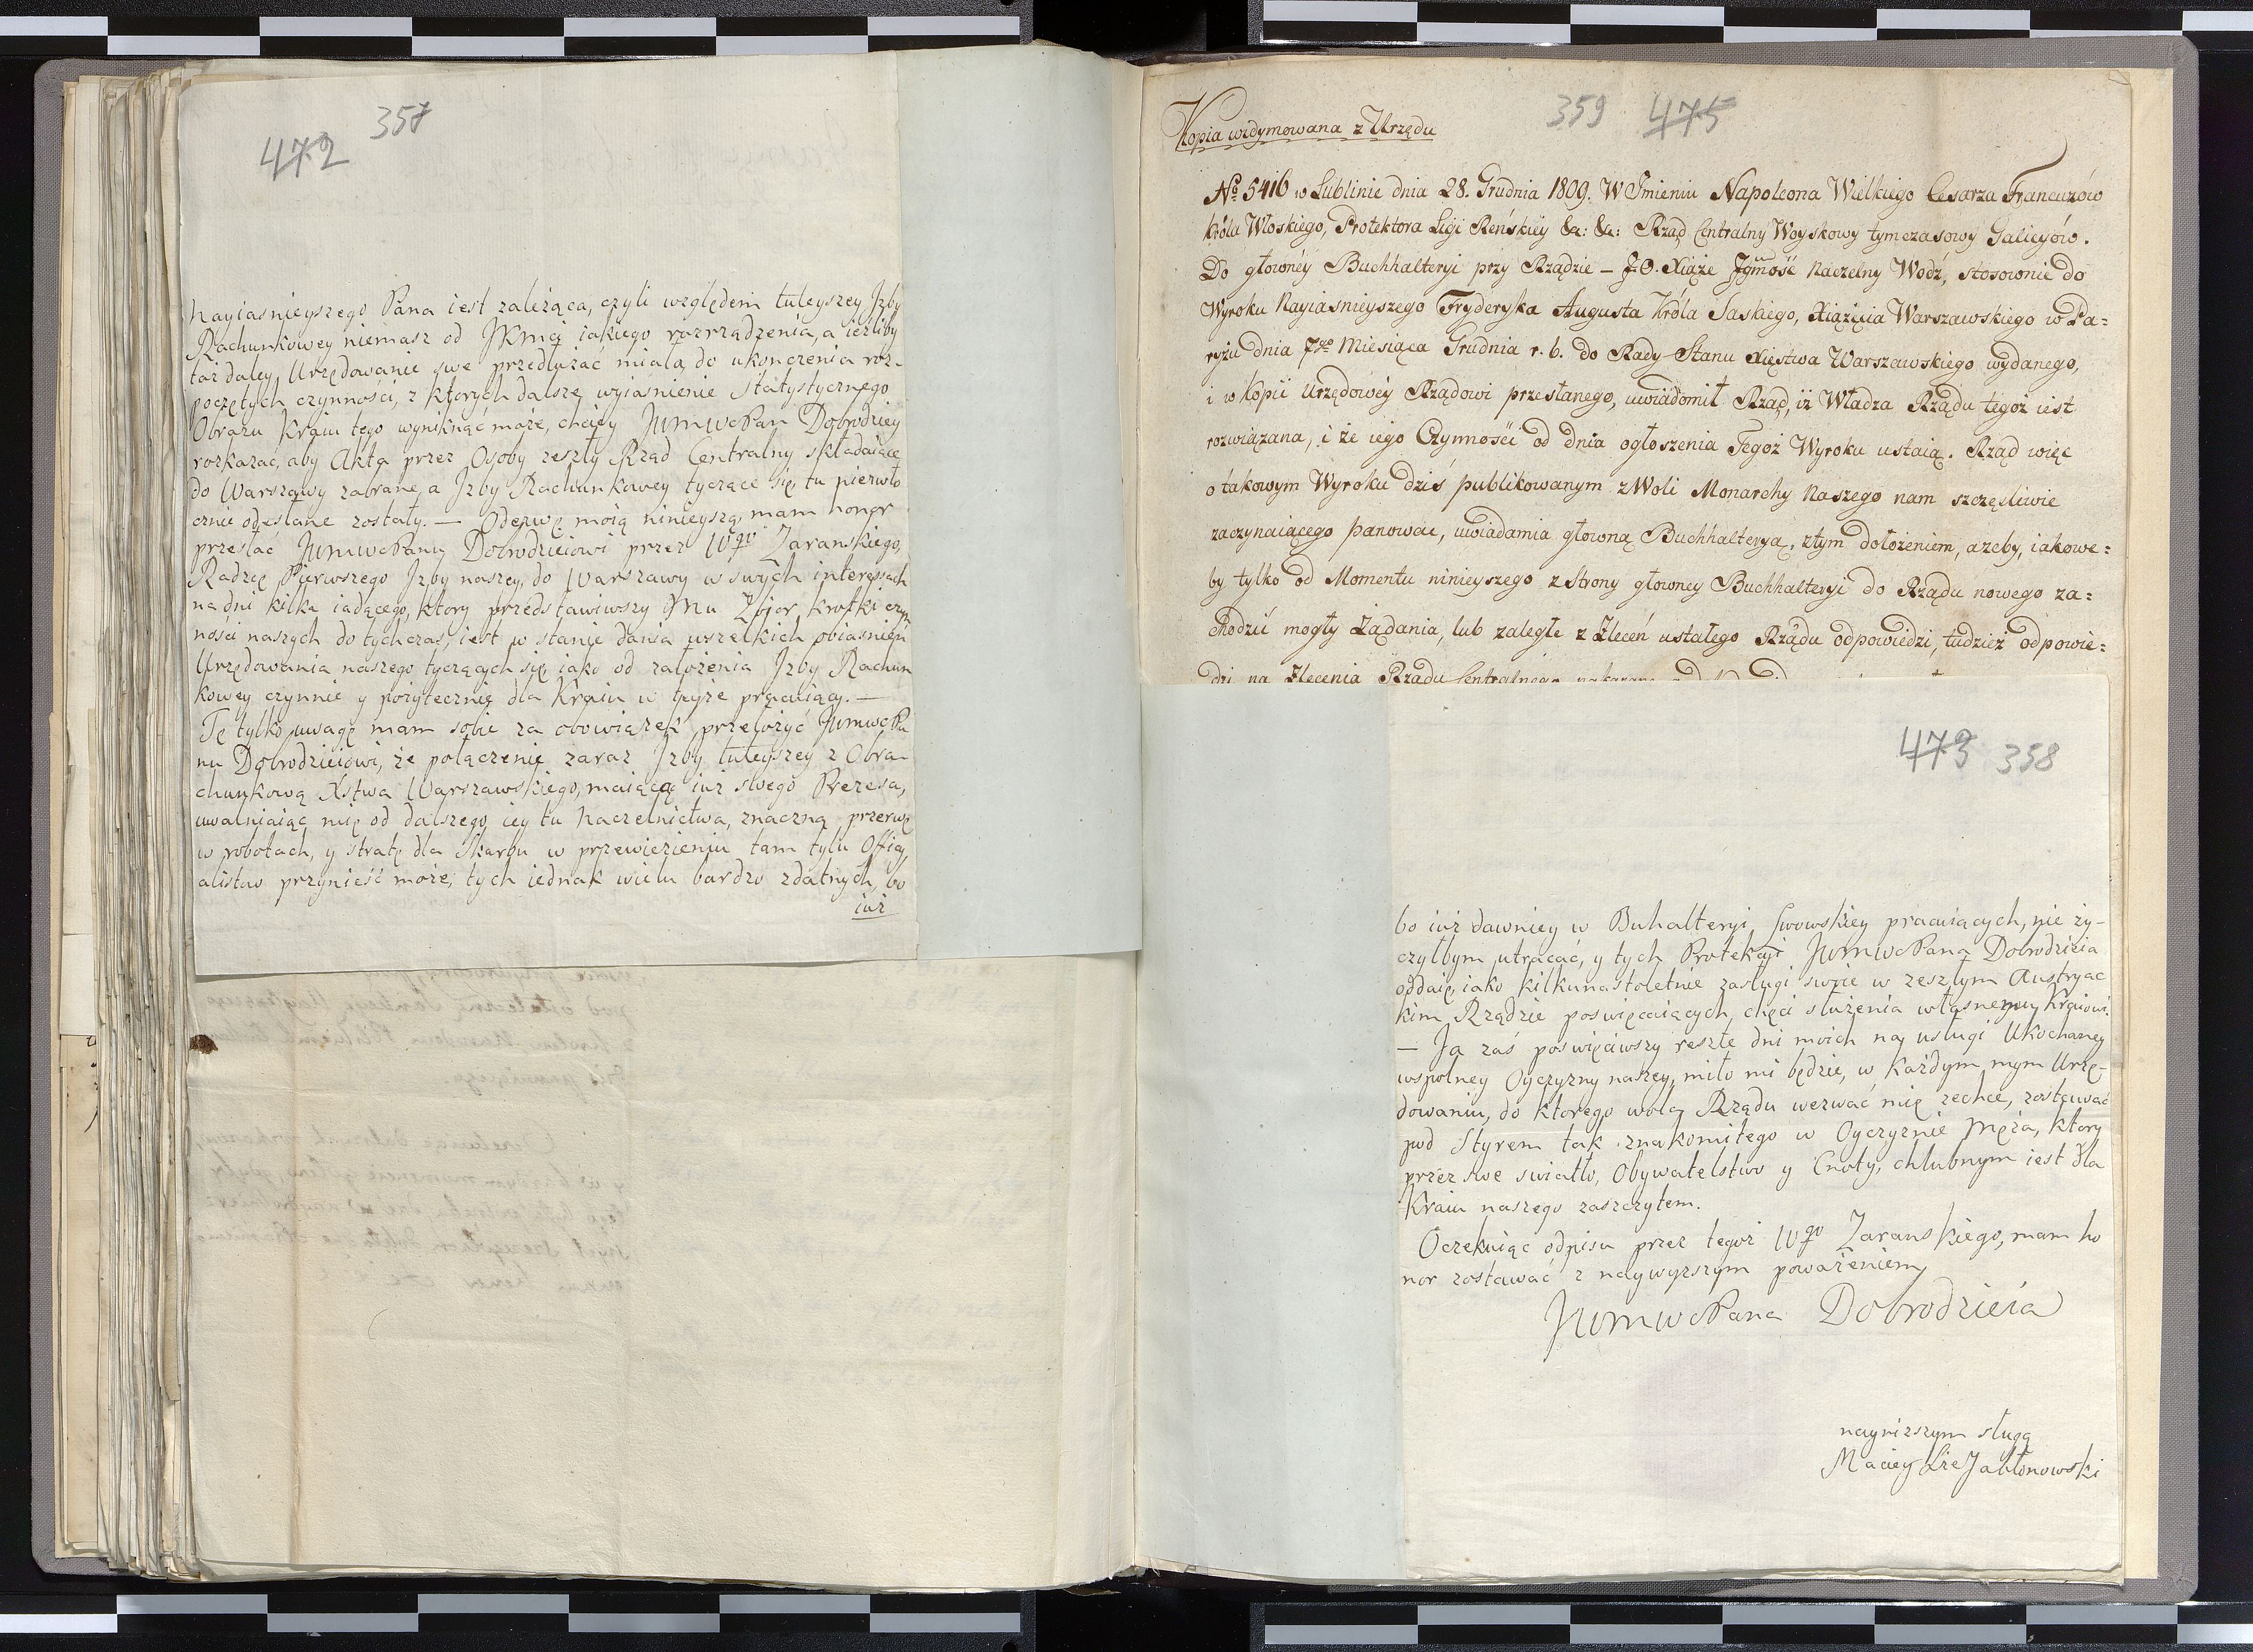 472 357
Nayiasnieyszego Pana iest zależąca, czyli względem tuteyszey Izby
Rachunkowey niemasz od JKmci iakiego rozrządzenia, a ieżliby
taż daley Urzędowanie swe przedłużać miała, do ukonczenia roz-
poczętych czynności, z ktorych dalsze wyiasnienie statystycznego
Obrazu Kraiu tego wyniknąć może, chciey JWmwcPan Dobrodziey
rozkazać, aby Akta przez Osoby zeszły Rząd Centralny składaiące
do Warszawy zabrane, a Izby Rachunkowey tyczące się, tu pierwio
cznie odesłane zostały. — Odezwę moią ninieyszą, mam honor
przesłać JWmwcPanu Dobrodzieiowi przez Wgo Zaranskiego,
Radzcę Pierwszego Izby naszey, do Warszawy w swych interessach
na dni kilka iadącego, ktory przedstawiwszy Mu Zbior krotki czyn
ności naszych do tychczas, iest w stanie dania wszelkich obiasnień
Urzędowania naszego tyczących się, iako od założenia Izby Rachun
kowey czynnie y pożytecznie dla Kraiu w teyże pracuiący. —
Tę tylko uwagę mam sobie za obowiązek przełożyć JWmwcPa
nu Dobrodzieiowi, że połączenie zaraz Izby tuteyszey z Obra-
chunkową Xstwa Warszawskiego, maiącą iuż swego Prezesa,
uwalniaiąc mię od dalszego iey tu Naczelnictwa, znaczną przerwę
w robotach, y stratę dla Skarbu w przewiezieniu tam tylu Offiy
alistow przynieść może, tych iednak wielu bardzo zdatnych, bo
iuż
Kopia widymowana z Urzędu
359 475
No 5416 w Lublinie dnia 28. Grudnia 1809. W Imieniu Napoleona Wielkiego Cesarza Francuzów
Króla Włoskiego, Protektora Ligi Reńskiéy &a: &a: Rząd Centralny Woyskowy tymczasowy Galicyów.
Do głownéy Buchhalteryi przy Rządzie – J.O. Xiąże Jgmość Naczelny Wodź, stosownie do
Wyroku Nayiasnieyszego Fryderyka Augusta Króla Saskiego, Xiążęcia Warszawskiego w Pa=
ryżu dnia 7go Miesiąca Grudnia r. b. do Rady Stanu Xięstwa Warszawskiego wydanego,
i w Kopii Urzędowéy Rządowi przesłanego, uwiadomił Rząd, iż Władza Rządu tegoż iest
rozwiązana, i że iego Czynności od dnia ogłoszenia Tegoż Wyroku ustaią. Rząd więc
o takowym Wyroku dziś publikowanym z Woli Monarchy Naszego nam szczęśliwie
zaczynaiącego panować, uwiadamia głowną Buchhalteryą, z tym dołożeniem, azeby, iakowe=
by tylko od Momentu ninieyszego z Strony głowney Buchhalteryi do Rządu nowego za=
chodzić mogły Ządania, lub zaległe z Zleceń ustałego Rządu odpowiedzi, tudzież odpowie=
dzi na Zlecenia Rządu Centralnego nakazane
473 358
bo iuż dawniey w Buhalteryi Lwowskiey pracuiących, nie ży-
czyłbym utracać, y tych Protekcyi JWmwcPana Dobrodzieia
oddaię, iako kilkunastoletnie zasługi swoie w zeszłym Austryac
kim Rządzie poswięcaiących, chęci służenia własnemu Kraiowi.
— Ja zaś poswięciwszy resztę dni moich na usługi Ukochaney
wspolney Oyczyzny naszey, miło mi będzie, w każdym mym Urzę-
dowaniu, do ktorego wola Rządu wezwać mię zechce, zostawać
pod Styrem tak znakomitego w Oyczyznie Męża, ktory
przez swe swiatło, Obywatelstwo y Cnoty, chlubnym iest dla
Kraiu naszego zaszczytem.
Oczekuiąc odpisu przez tegoż Wgo Zaranskiego, mam ho
nor zostawać z naywyzszym poważeniem
JWmwcPana Dobrodzieia
nayniższym sługą
Maciey Jabłonowski